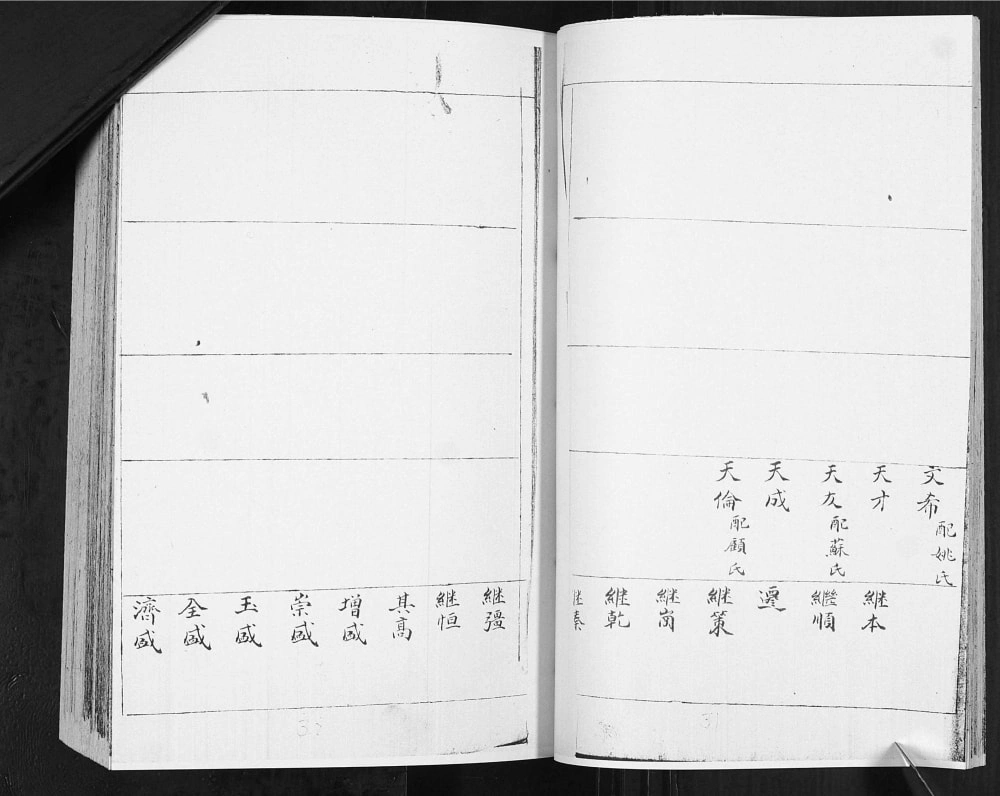 文希 配姚氏
天才
天友 配蘇氏
天成
天倫 配顧氏
継本
繼順
遷
継策
継崗
継乾
継
継彊
継恒
其高
增盛
崇盛
玉盛
全盛
濟盛
31